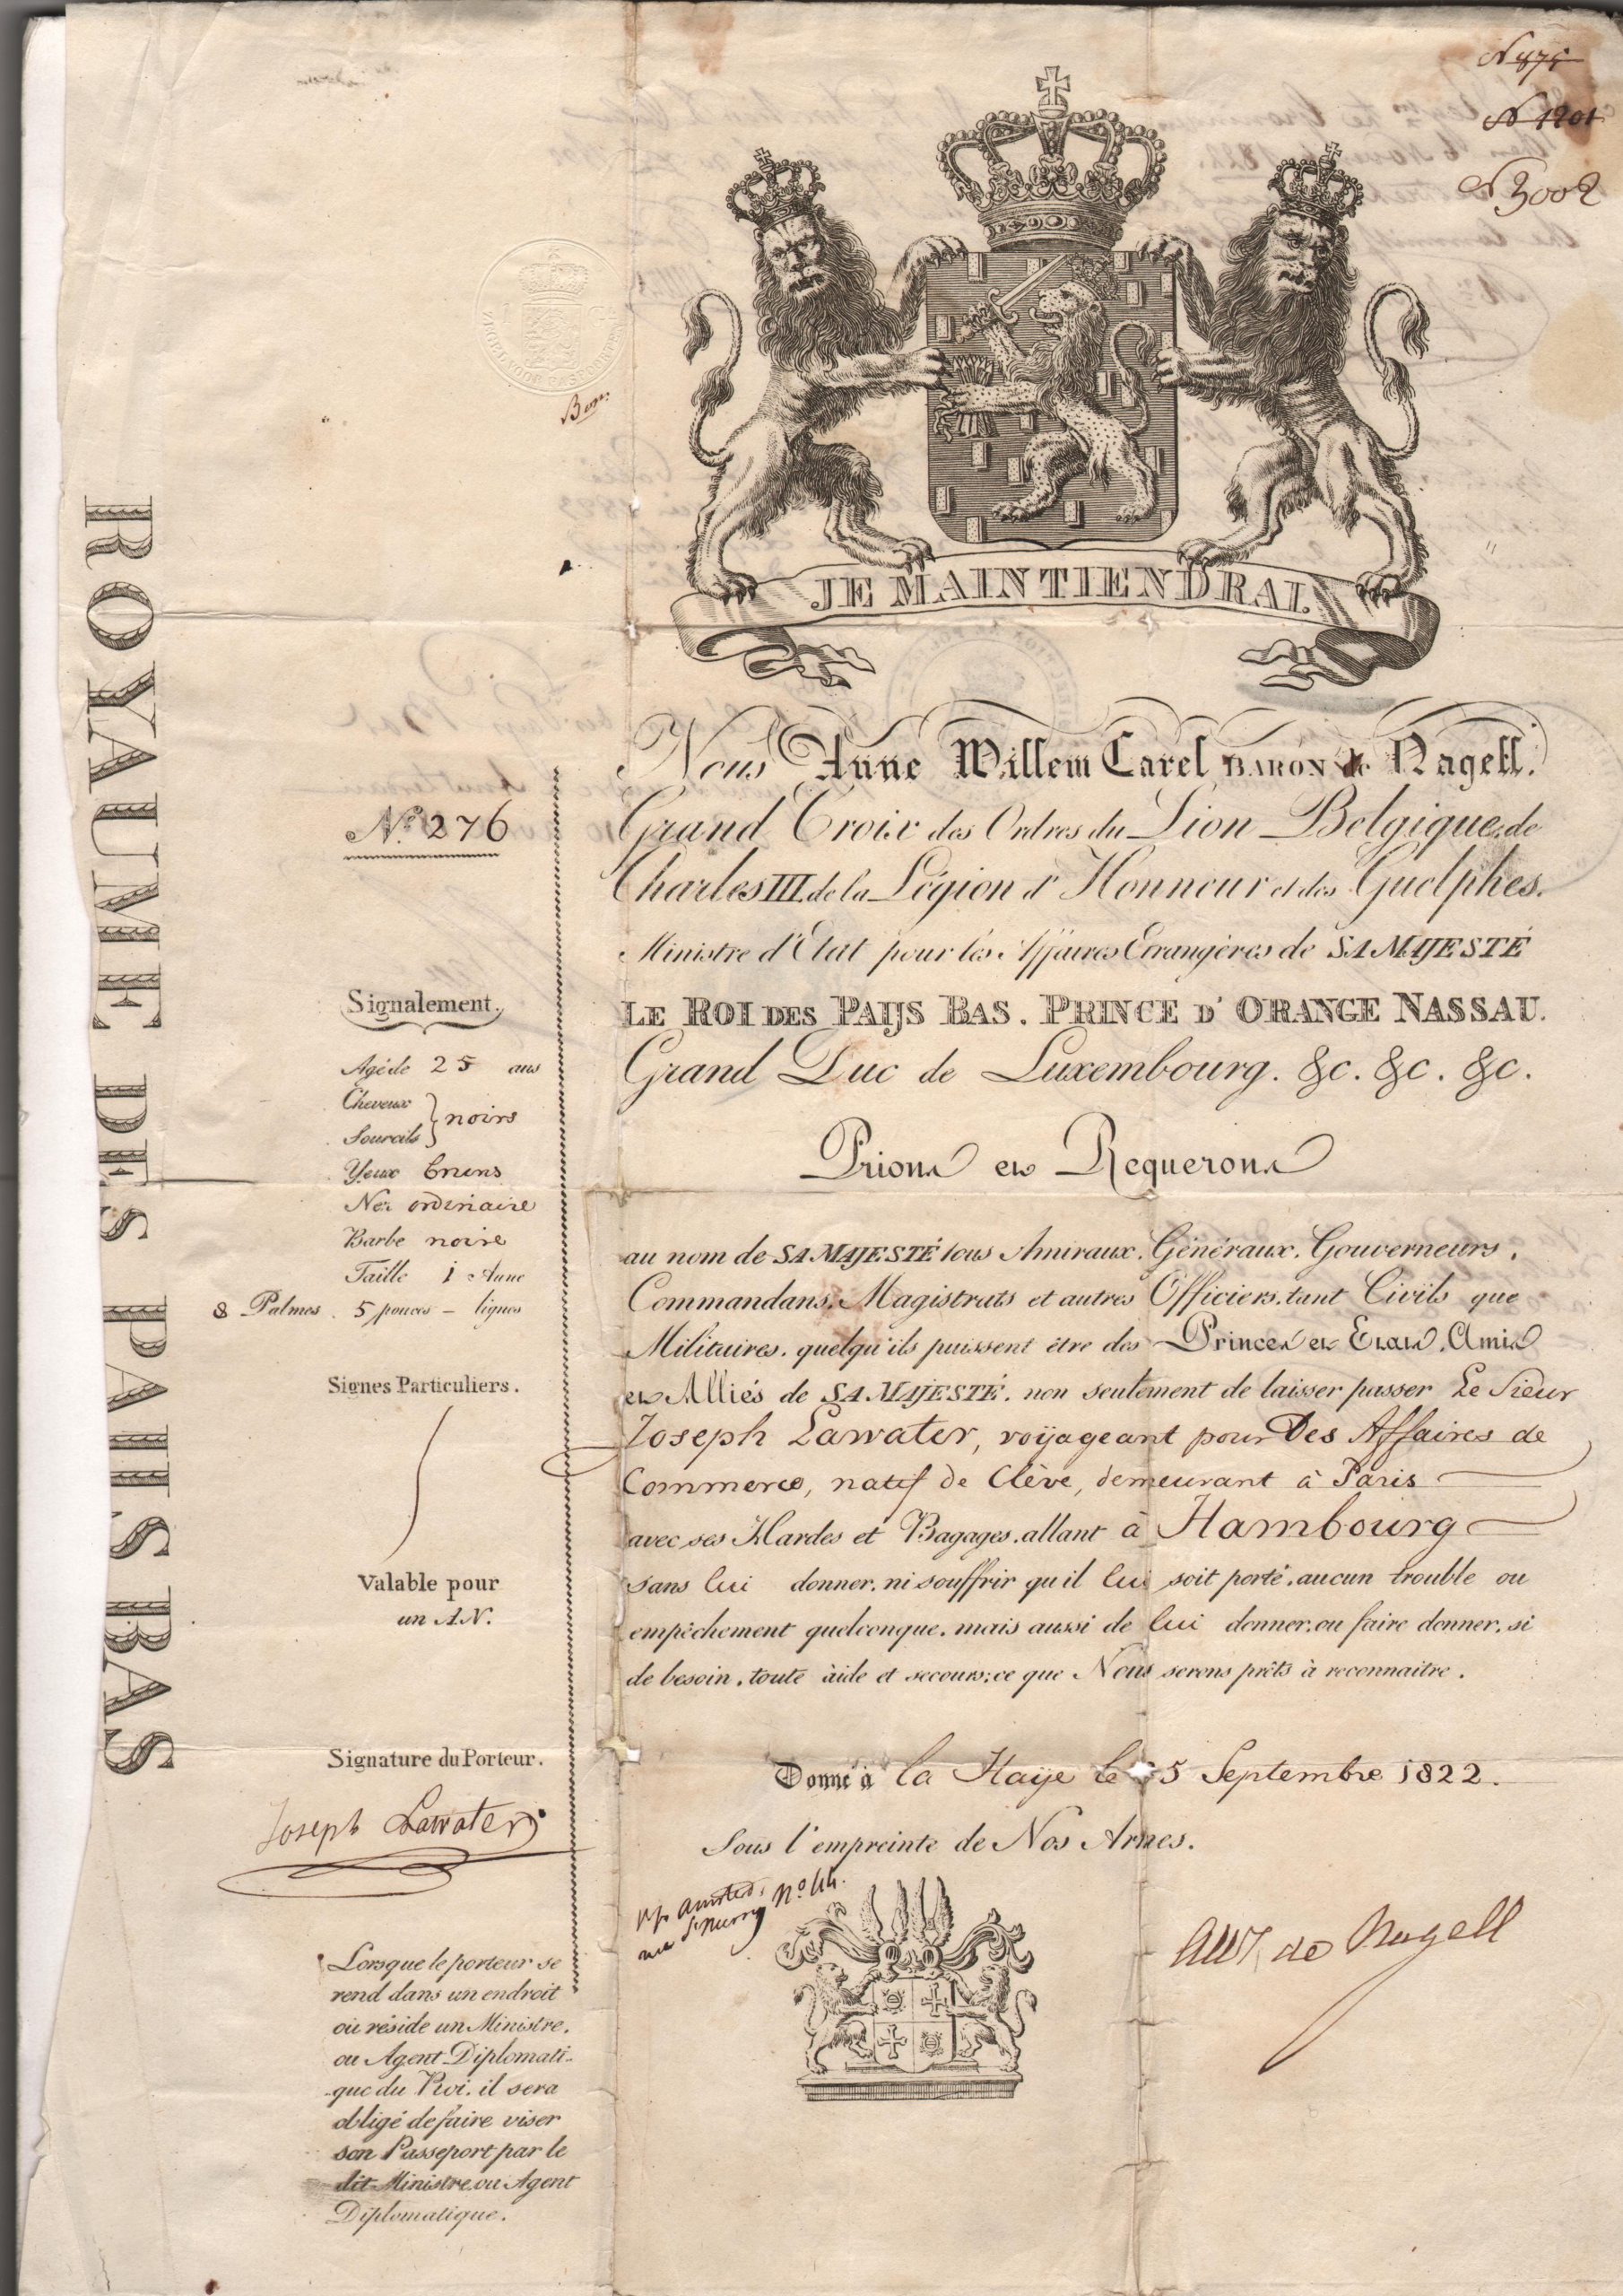 N 875
N 1201
N 3002
ZEGEL VOOR PASPOORTEN
JE MAINTIENDRAI.
ROYAUME DES PAIJS BAS
Nous Anne Willem Carel BARON de Nagell.
Grand Croix des Ordres du Lion Belgique, de
Charles III. de la Légion d'Honneur et des Guelphes.
Ministre d'Etat pour les Affaires Etrangères de SA MAJESTÉ
LE ROI DES PAIJS BAS. PRINCE D'ORANGE NASSAU.
Grand Duc de Luxembourg. &c. &c. &c.
Prions et Requerons
au nom de SA MAJESTÉ tous Amiraux. Généraux. Gouverneurs.
Commandans. Magistrats et autres Officiers. tant Civils que
Militaires. quelqu'ils puissent être des Princes et Etats. Amis
et Alliés de SA MAJESTÉ. non seulement de laisser passer Le Sieur
Joseph Lawater, voÿageant pour Des Affaires de
Commerce, natif de Clève, demeurant à Paris
avec ses Hardes et Bagages. allant à Hambourg
sans lui donner. ni souffrir qu'il lui soit porté. aucun trouble ou
empêchement quelconque. mais aussi de lui donner. ou faire donner. si
de besoin. toute aide et secours; ce que Nous serons prêts à reconnaitre.
Donné à la Haÿe le 5 Septembre 1822.
Sous l'empreinte de Nos Armes.
N.º 276
Signalement.
Agé de 25 ans
Cheveux
Sourcils } noirs
Yeux bruns
Nez ordinaire
Barbe noire
Taille 1 Aune
8 Palmes. 5 pouces – lignes
Signes Particuliers.
Valable pour
un AN.
Signature du Porteur.
Joseph Lawater
Lorsque le porteur se
rend dans un endroit
où réside un Ministre.
ou Agent Diplomati-
-que du Roi. il sera
obligé de faire viser
son Passeport par le
dit Ministre ou Agent
Diplomatique.
nº 44.
AWC de Nagell